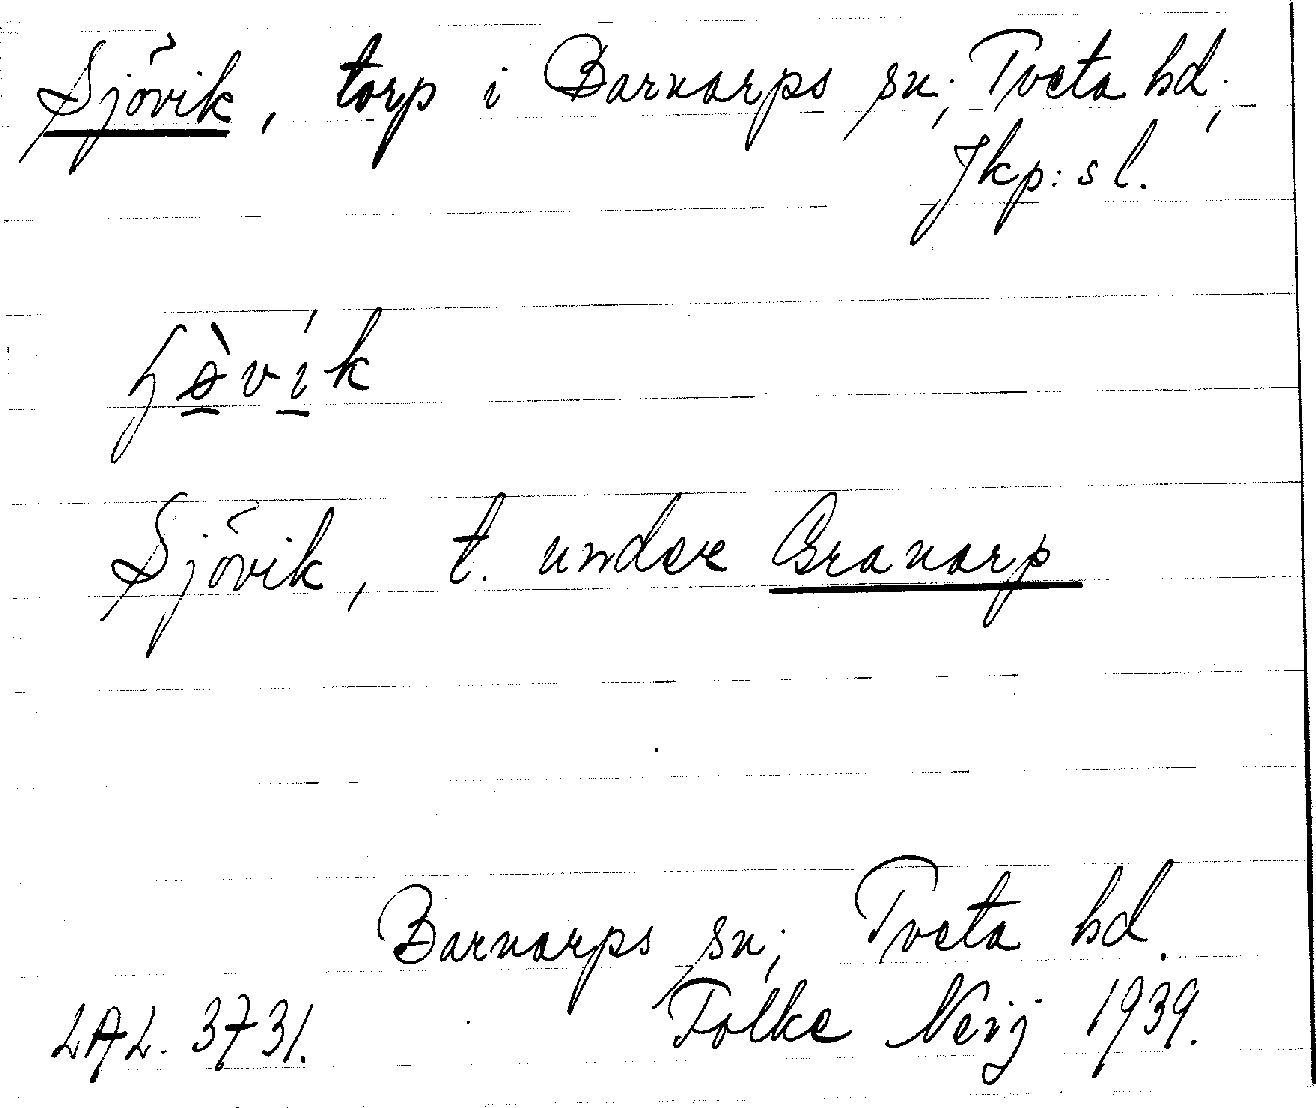 Sjövik, torp i Barnarps sn; Tveta hd;
Jkp:s l.
Sjövik, t. under Granarp
Barnarps sn; Tveta hd.
LAL. 3731. Folke Neij 1939.